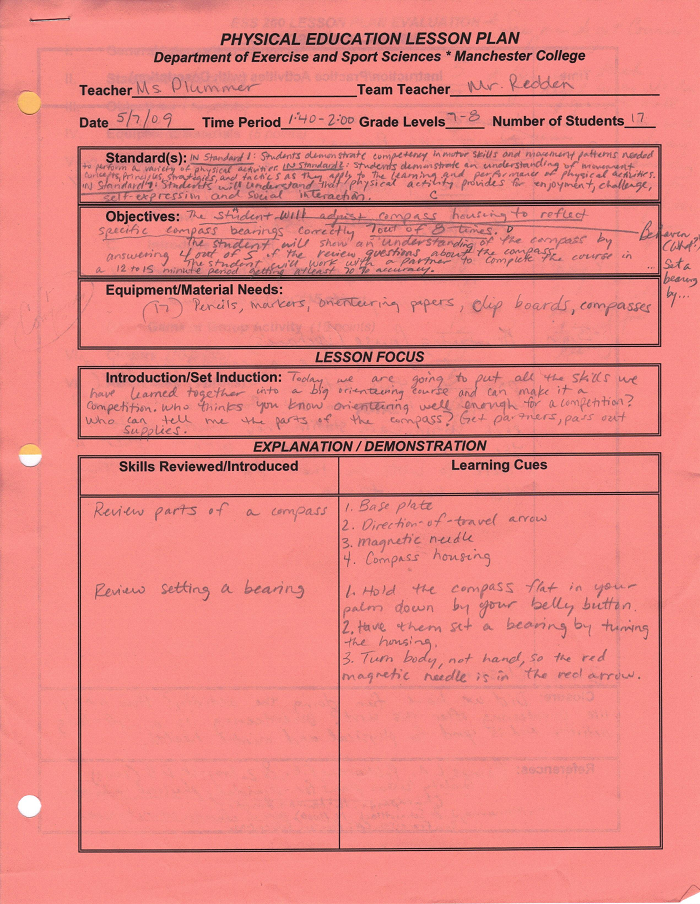 PHYSICAL EDUCATION LESSON PLAN
Department of Exercise and Sport Sciences * Manchester College
Teacher Ms Plummer Team Teacher Mr. Redden
Date 5/7/09 Time Period 1:40-2:00 Grade Levels 7-8 Number of Students 17
Standard(s): IN Standard 1: Students demonstrate competency in motor skills and movement patterns needed
to perform a variety of physical activities. IN Standard 2: Students demonstrate an understanding of movement
concepts, principles, strategies, and tactics as they apply to the learning and performance of physical activities.
IN Standard 7: Students will understand that physical activity provides for enjoyment, challenge,
self-expression and social interaction. C
Objectives: The student will adjust compass housing to reflect
specific compass bearings correctly 7 out of 8 times.
The student will show an understanding of the compass by
answering 4 out of 5 of the review questions about the compass.
The student will work with a partner to complete the course in
a 12 to 15 minute period getting atleast 70% accuracy.
Behavior
(What?)
Set a
bearing
by...
Equipment/Material Needs:
(17) Pencils, markers, orienteering papers, clip boards, compasses
LESSON FOCUS
Introduction/Set Induction: Today we are going to put all the skills we
have learned together into a big orienteering course and can make it a
competition. Who thinks you know orienteering well enough for a competition?
Who can tell me the parts of the compass? Get partners, pass out
supplies.
EXPLANATION / DEMONSTRATION
Skills Reviewed/Introduced
Learning Cues
Review parts of a compass
1. Base plate
2. Direction-of-travel arrow
3. Magnetic needle
4. Compass housing
Review setting a bearing
1. Hold the compass flat in your
palm down by your belly button.
2. Have them set a bearing by turning
the housing.
3. Turn body, not hand, so the red
magnetic needle is in the red arrow.